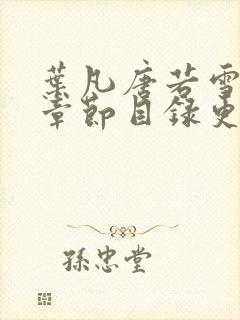 葉凡唐若雪
章節目録史
孫忠堂